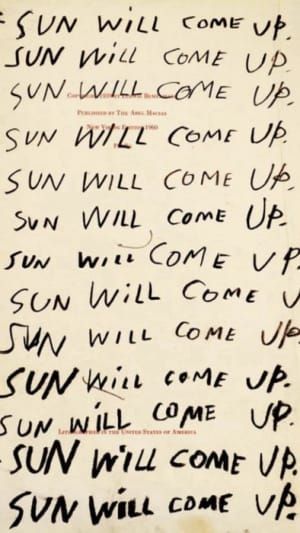 SUN WILL COME UP.
SUN WILL COME UP.
SUN WILL COME UP.
PUBLISHED BY THE
SUN WILL COME UP.
1960
SUN WILL COME UP.
SUN WILL COME UP.
SUN WILL COME UP.
SUN WILL COME U
SUN WILL COME UP
SUN WILL COME UP.
SUN WILL COME UP.
IN THE UNITED STATES OF AMERICA
SUN WILL COME UP.
SUN WILL COME UP.